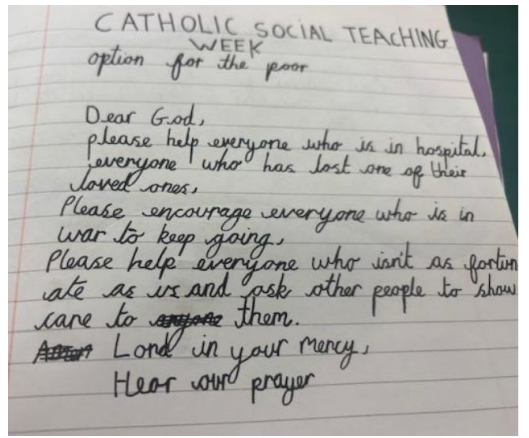 CATHOLIC SOCIAL TEACHING
WEEK
option for the poor
Dear God,
please help everyone who is in hospital,
everyone who has lost one of their
loved ones,
Please encourage everyone who is in
war to keep going,
Please help everyone who isn't as fortun
ate as us and ask other people to show
care to anyone them.
Amen Lord in your mercy,
Hear our prayer